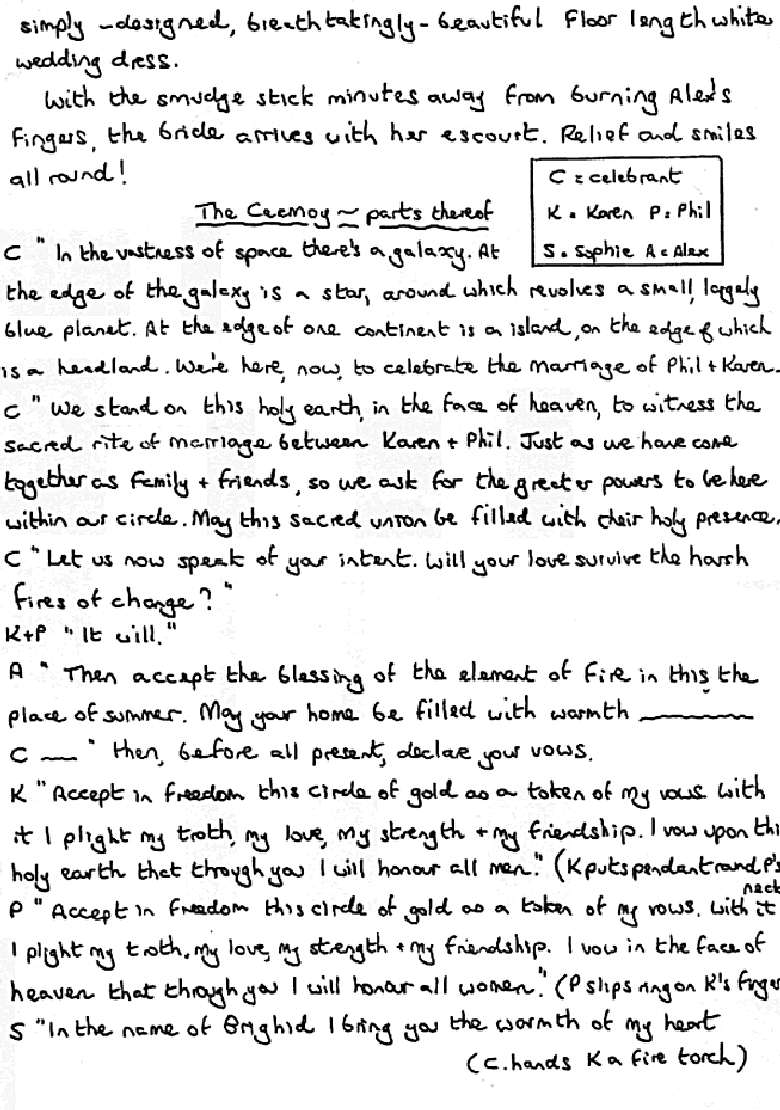 simply-designed, breathtakingly-beautiful floor length white
wedding dress.
With the smudge stick minutes away from burning Alex's
fingers, the bride arrives with her escourt. Relief and smiles
all round!
C = celebrant
K = Karen P = Phil
S = Sophie A = Alex
The Ceemoy ~ parts thereof
C "In the vastness of space there's a galaxy. At
the edge of the galaxy is a star, around which revolves a small, largely
blue planet. At the edge of one continent is a island, on the edge of which
is a headland. We're here, now, to celebrate the marriage of Phil + Karen.
C "We stand on this holy earth, in the face of heaven, to witness the
sacred rite of marriage between Karen + Phil. Just as we have come
together as family + friends, so we ask for the greater powers to be here
within our circle. May this sacred union be filled with their holy presence.
C "Let us now speak of your intent. Will your love survive the harsh
fires of change?"
K+P "It will."
A "Then accept the blessing of the element of fire in this the
place of summer. May your home be filled with warmth ———
C — "then, before all present, declare your vows.
K "Accept in freedom this circle of gold as a token of my vows. With
it I plight my troth, my love, my strength + my friendship. I vow upon thi
holy earth that through you I will honour all men." (K puts pendant round P's
neck
P "Accept in freedom this circle of gold as a token of my vows. With it
I plight my troth, my love, my strength + my friendship. I vow in the face of
heaven that through you I will honour all women." (P slips ring on K's finger
S "In the name of Brighid I bring you the warmth of my heart
(C. hands K a fire torch)